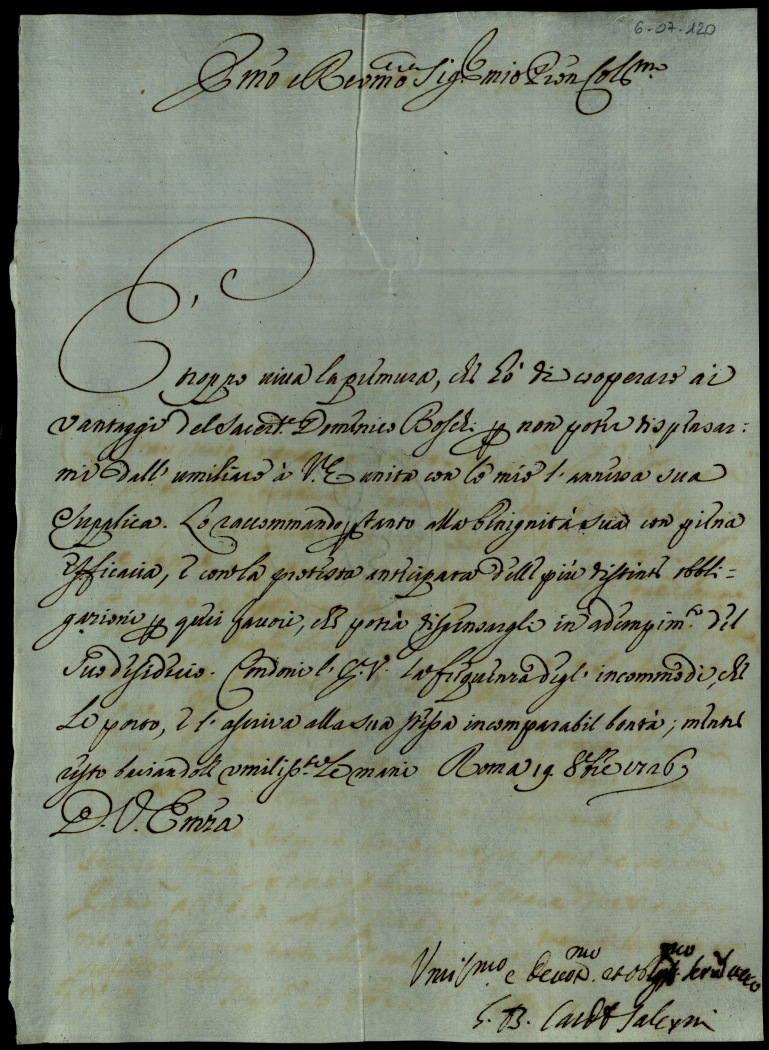 6-07-120
Emo e Revmo Sig.r mio Pron Colmo
È troppo viva la premura, che hò di cooperare ai
vantaggi del Sacerd.e Domenico Boschi per non poter dispensar:
mi dall' umiliare à V.E. unita con le mie l' annessa sua
supplica. Lo raccommando pertanto alla benignità sua con piena
efficacia, e con la protesta anticipata delle più distinte obbli=
gazioni per quei favori, che potrà dispensargli in adempim.to del
suo desiderio. Condoni l' E.V. la frequenza degl' incommodi, che
Le porto, e l' ascriva alla sua stessa incomparabil bontà; mentre
resto baciandole umilissm.te Le mani Roma 19 8bre 1726
D. V. Emza
Umilmo e devotmo et obligmo servid vero
G. B. Card Salerni